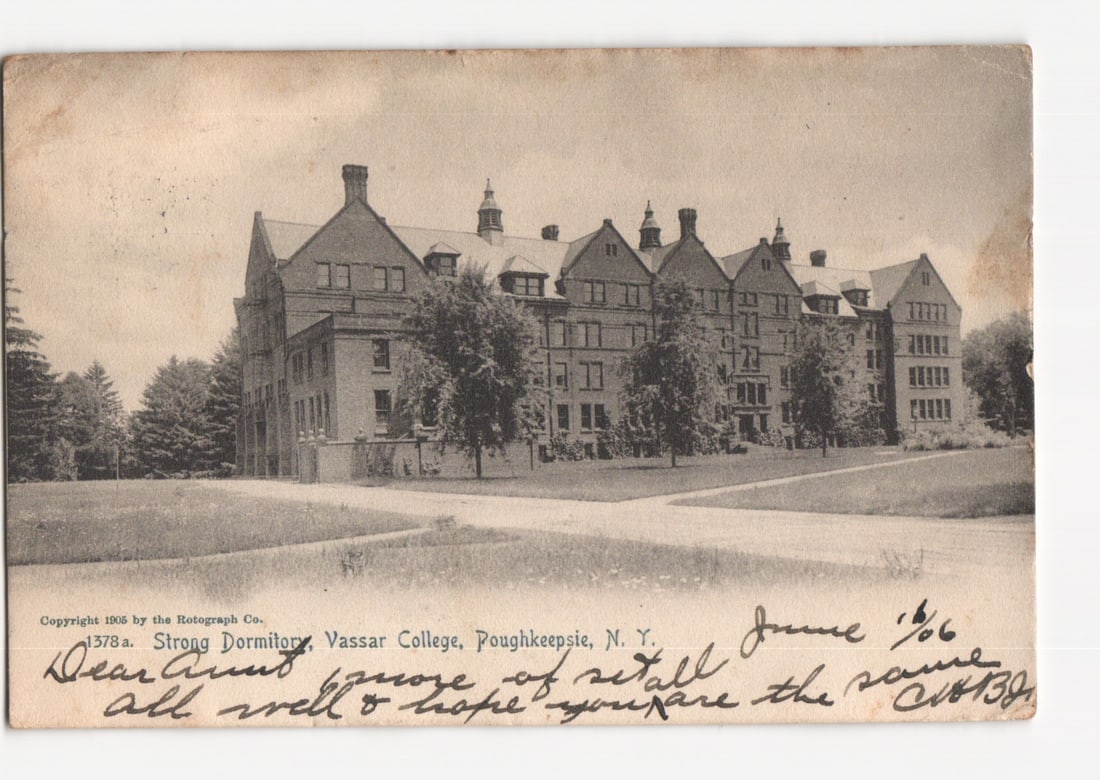 Copyright 1905 by the Rotograph Co.
1378 a. Strong Dormitory, Vassar College, Poughkeepsie, N. Y.
June 16/06
Dear Aunt more of
all well & hope you are the same